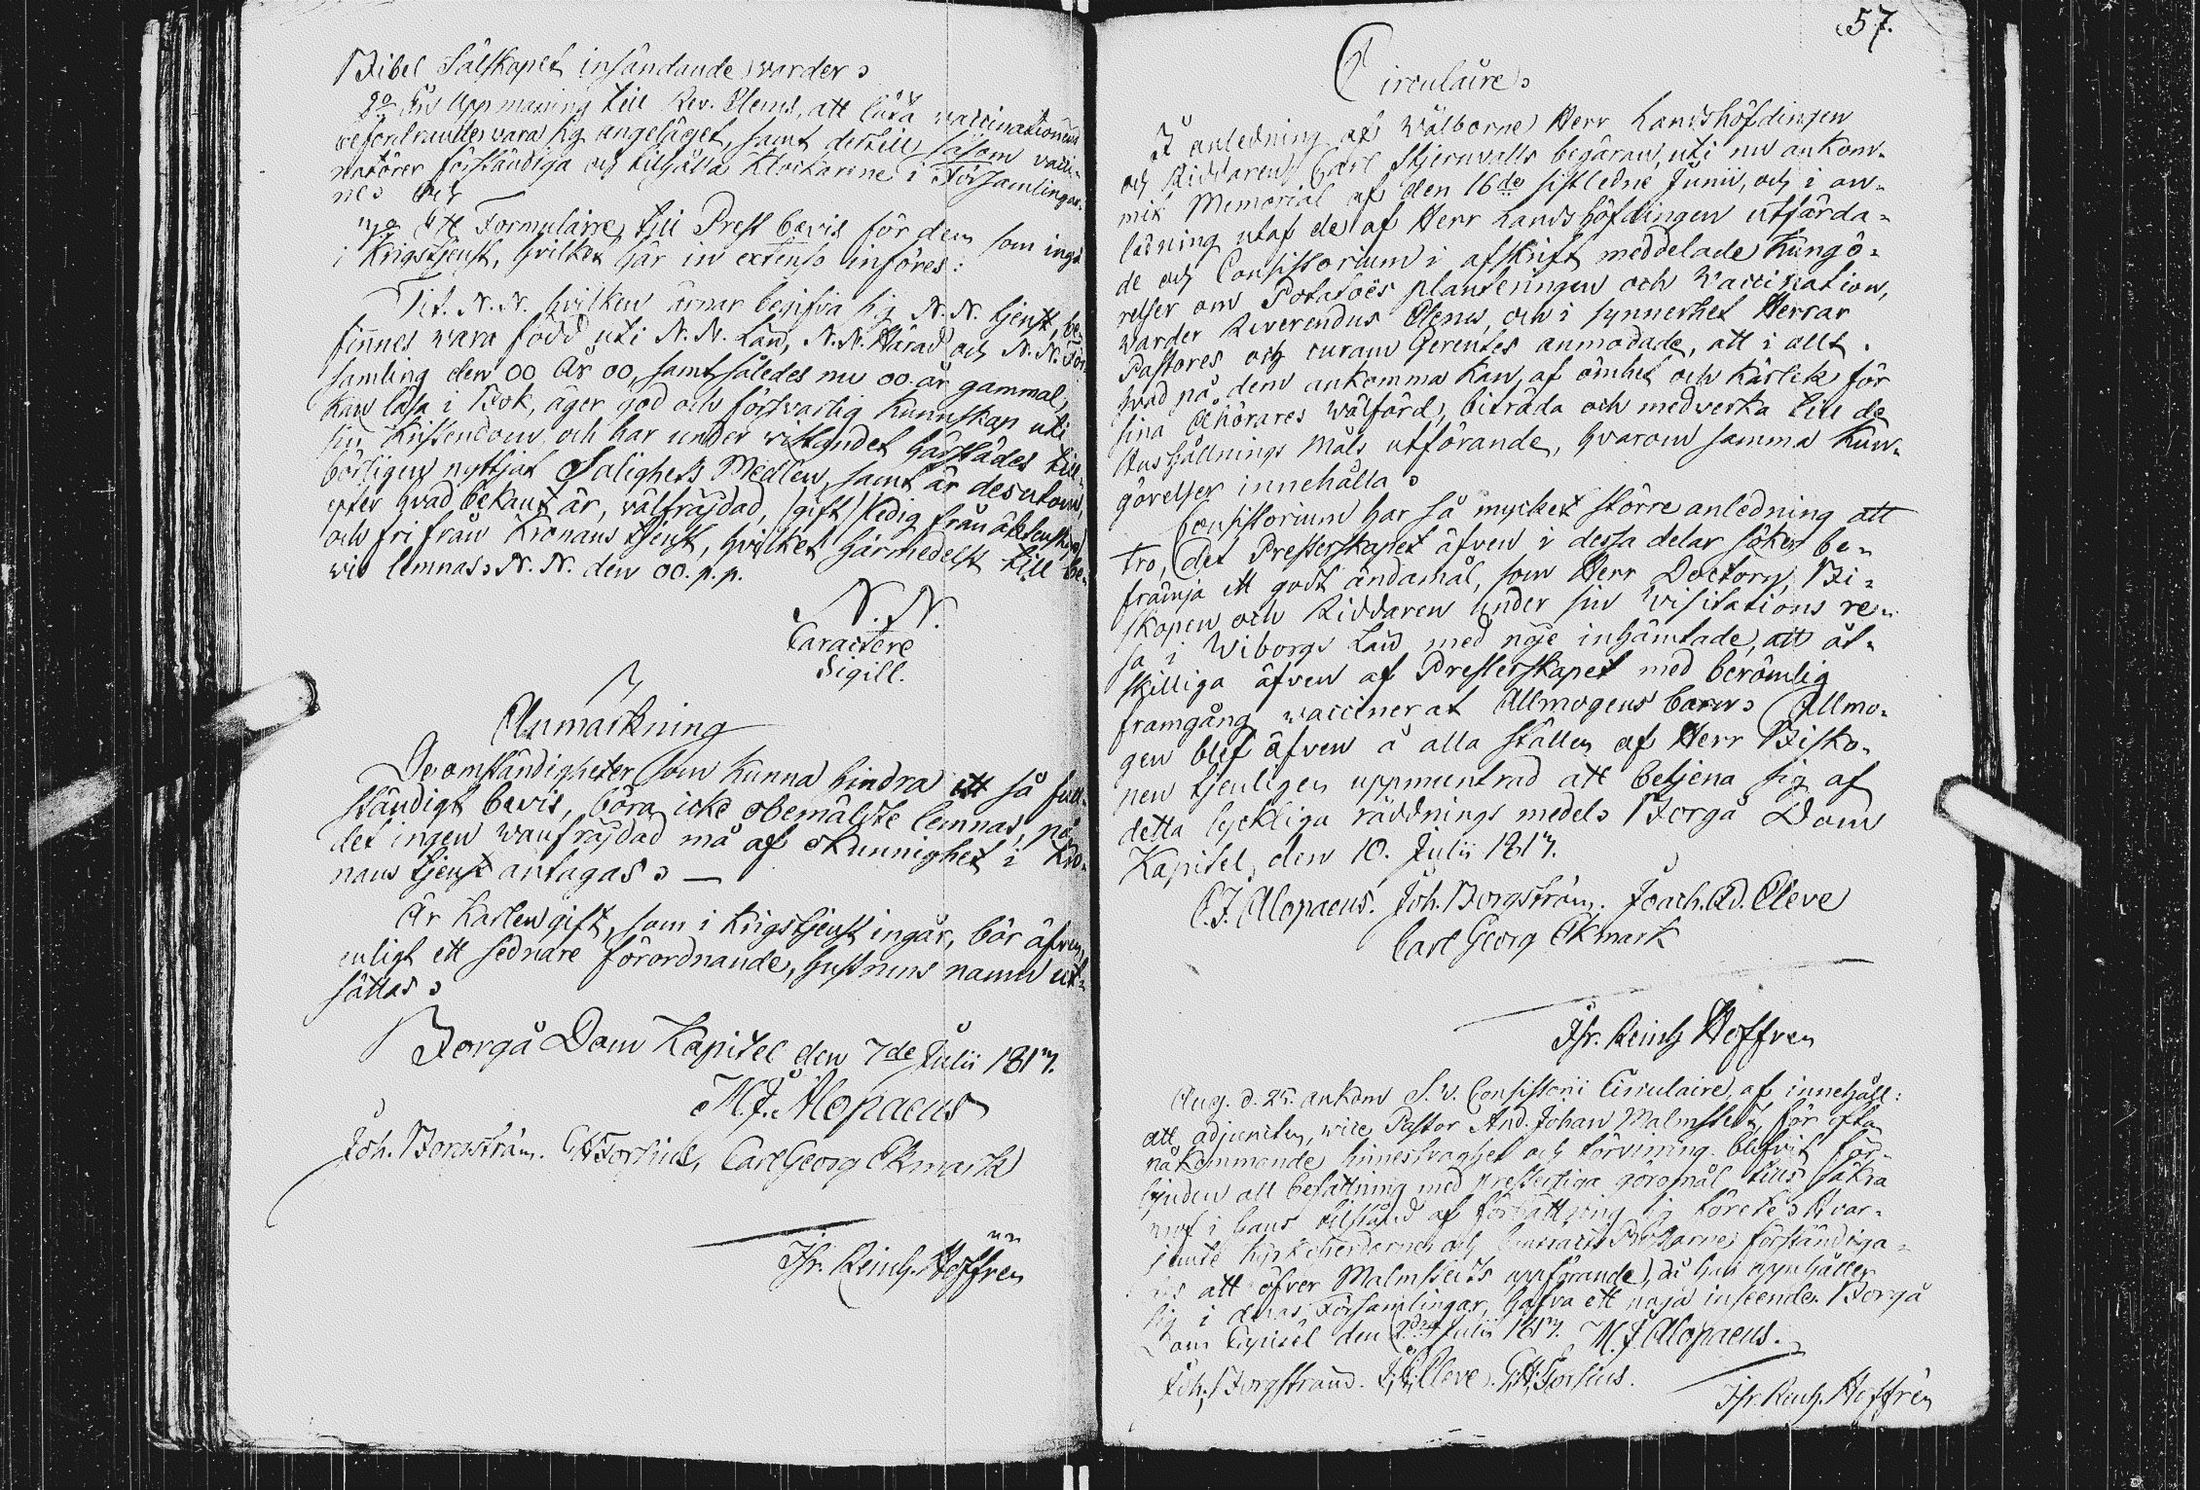 Bibel Sälskapet insändande warder.
2o En Uppmaning till Rev. Clerus, att låta vaccinationens
befordrande vara sig angeläget, samt dertill såsom vacci-
natörer förständiga och tillhålla Klockarne i Församlingar-
ne. och
Ett Formulaire till Prest bevis för dem som ingå
i Krigstjenst, hvilket här in extenso införes:
Tit. N. N. hvilken ärnar begifva sig N. N. tjenst, be-
finnes wara född uti N. N. Län, N. N. Härad och N. N. För-
samling den 00 År 00, samt således nu 00 år gammal,
Kan läsa i Bok, äger god och försvarlig Kunnskap uti
sin Kristendom, och har under wistandet härstädes till-
börligen nyttjat Salighets Medlen, samt är desutom,
efter hvad bekant är, välfräjdad, (gift) ledig från äktenskap
och fri från Kronans tjenst, hvilket härmedelst till be-
wis lemnas. N. N. den 00. p. p.
N. N.
Caractere
Sigill.
Anmärkning
De omständigheter som kunna hindra ett så full-
ständigt bevis, böra icke obemälte lemnas, på
det ingen wanfräjdad må af okunnighet i Kro-
nans tjenst antagas. —
Är Karlen gift, som i Krigstjenst ingår, bör äfven,
enligt ett sednare förordnande, hustruns namn ut-
sättas.
Borgå Dom Kapitel den 7de Julii 1817.
M. J. Alopaeus
Joh. Borgström. G H Forsius, Carl Georg Ekmark
Hoffren
57.
Circulaire.
I anledning af Wälborne Herr Landshöfdingen
och Riddaren Carl Stjernvalls begäran, uti nu ankom-
mit Memorial af den 16de sistledne Junii, och i an-
ledning utaf de af Herr Landshöfdingen utfärda-
de och Consistorium i afskrift meddelade Kungö-
relser om Potatoes planteringen och Vaccination,
warder Reverendus Clerus, och i synnerhet Herrar
Pastores och curam Gerentes anmodade, att i allt
hvad på dem ankomma kan, af ömhet och Kärlek för
sina Åhörares wälfärd, biträda och medverka till de
Hushållnings Måls utförande, hvarom samma Kun-
görelser innehålla.
Consistorium har så mycket större anledning att
tro, det Presterskapet äfven i dessa delar söker be-
främja ett godt ändamål, som Herr Doctorn, Bi-
skopen och Riddaren under sin Visitations re-
sa i Wiborgs Län med nöje inhämtade, att åt-
skilliga äfven af Presterskapet med berömlig
framgång vaccinerat Allmogens barn. Allmo-
gen blef äfven å alla ställen af Herr Bisko-
pen tjenligen uppmuntrad att betjena sig af
detta lyckliga räddnings medel. Borgå Dom
Kapitel, den 10. Julii 1817.
Alopaeus. Joh. Borgström. Joach. Ad. Cleve
Carl Georg Ekmark
Hoffren
Aug. d. 25. ankom Consistorii Circulaire, af innehåll:
att adjuncten, vice Pastor And. Johan Malmstedt, för ofta
påkommande sinnessvaghet och förvirring blifvit för-
bjuden all befattning med presterliga göromål tills säkra
prof i hans tillstånd af förbättring sig förete. Hvar-
jemte Kyrkoherdarne och förständiga-
s att öfver Malmstedts uppförande, då han uppehåller
sig i deras Församlingar, hafva ett noga inseende. Borgå
Dom Capitel den Julii 1817. M. J. Alopaeus.
Joh. Borgström. Cleve. G. H. Forsius.
Hoffrén